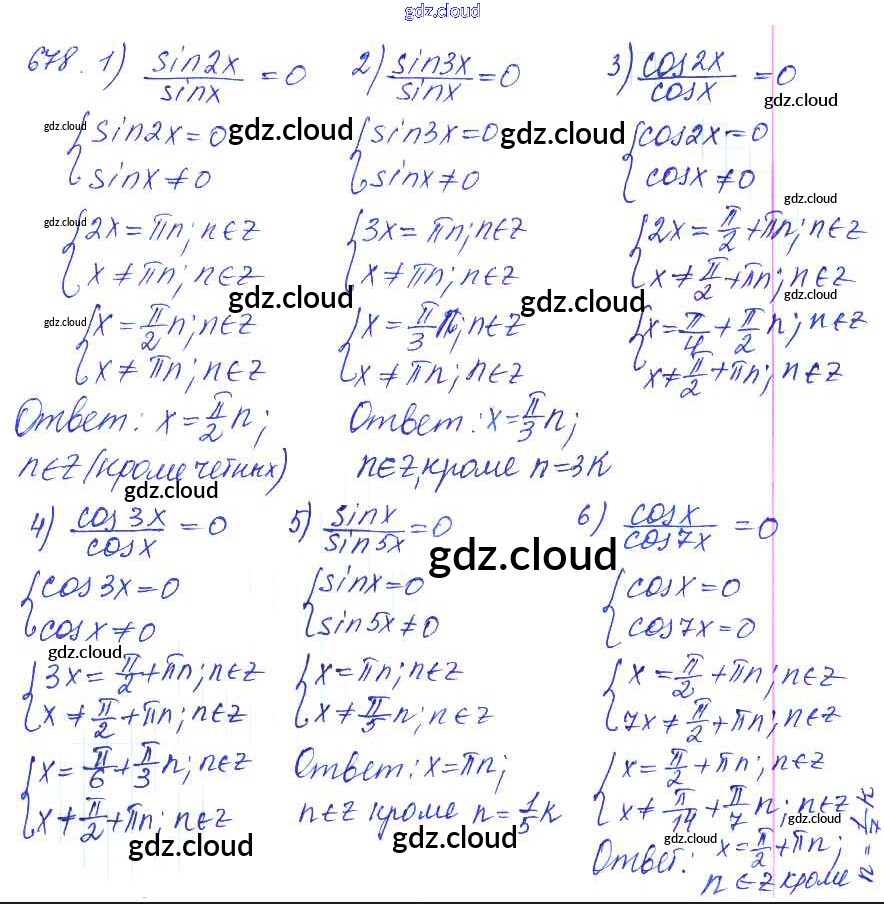 gdz.cloud
678. 1) sin2x/sinx = 0
gdz.cloud { sin2x = 0 gdz.cloud
sinx ≠ 0
gdz.cloud { 2x = πn; n∈Z
x ≠ πn; n∈Z
gdz.cloud
gdz.cloud { x = π/2 n; n∈Z
x ≠ πn; n∈Z
Ответ: x = π/2 n;
n∈Z (кроме четных)
gdz.cloud
2) sin3x/sinx = 0
{ sin3x = 0 gdz.cloud
sinx ≠ 0
{ 3x = πn; n∈Z
x ≠ πn; n∈Z
gdz.cloud
{ x = π/3 n; n∈Z
x ≠ πn; n∈Z
Ответ: x = π/3 n;
n∈Z, кроме n = 3k
3) cos2x/cosx = 0
gdz.cloud
{ cos2x = 0
cosx ≠ 0
gdz.cloud
{ 2x = π/2 + πn; n∈Z
x ≠ π/2 + πn; n∈Z
gdz.cloud
{ x = π/4 + π/2 n; n∈Z
x ≠ π/2 + πn; n∈Z
4) cos3x/cosx = 0
{ cos3x = 0
cosx ≠ 0
gdz.cloud
{ 3x = π/2 + πn; n∈Z
x ≠ π/2 + πn; n∈Z
{ x = π/6 + π/3 n; n∈Z
x ≠ π/2 + πn; n∈Z
gdz.cloud
5) sinx/sin5x = 0
gdz.cloud
{ sinx = 0
sin5x ≠ 0
{ x = πn; n∈Z
x ≠ π/5 n; n∈Z
Ответ: x = πn;
n∈Z кроме n = 1/5 k
gdz.cloud
6) cosx/cos7x = 0
{ cosx = 0
cos7x = 0
{ x = π/2 + πn; n∈Z
7x ≠ π/2 + πn; n∈Z
{ x = π/2 + πn; n∈Z
x ≠ π/14 + π/7 n; n∈Z
gdz.cloud
Ответ: x = π/2 + πn;
gdz.cloud
n∈Z кроме